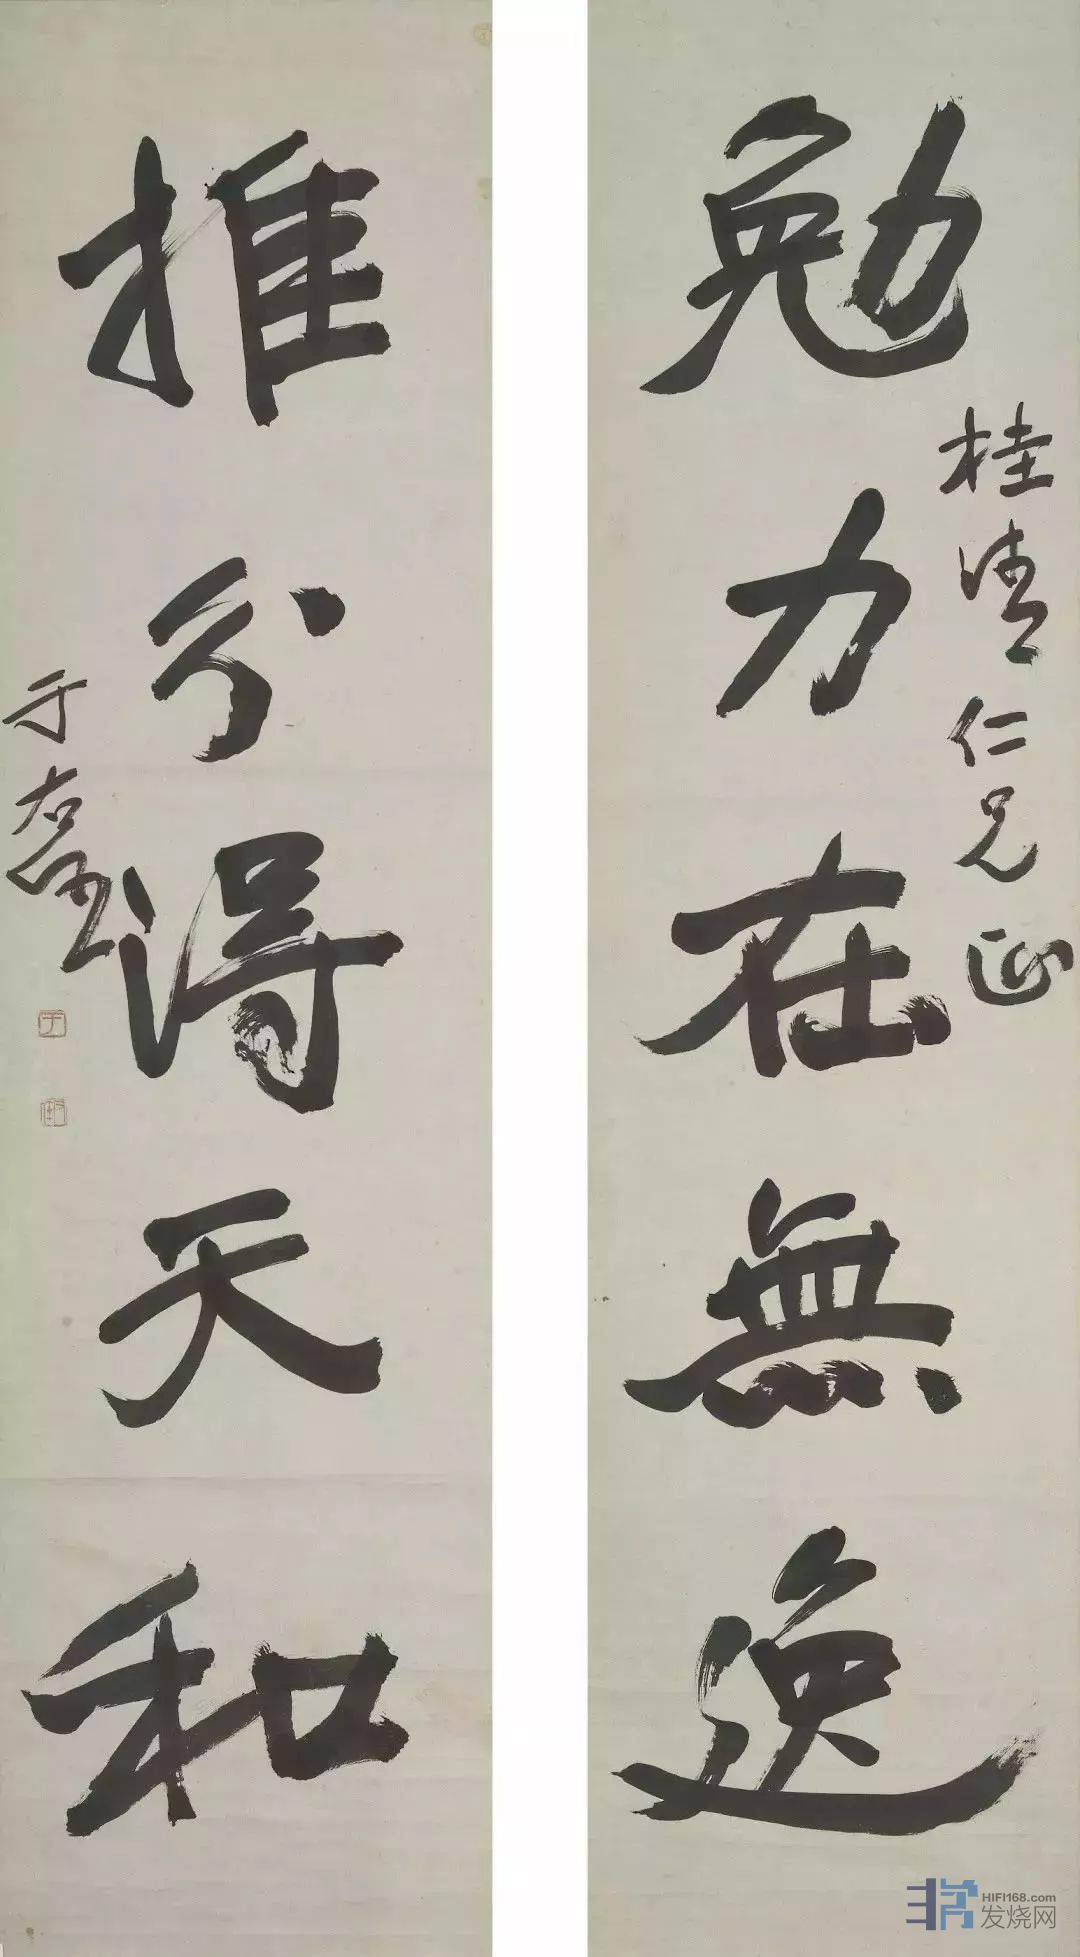 勉力在無逸
桂清仁兄正
推分得天和
于右任
HIFI168.com
发烧网